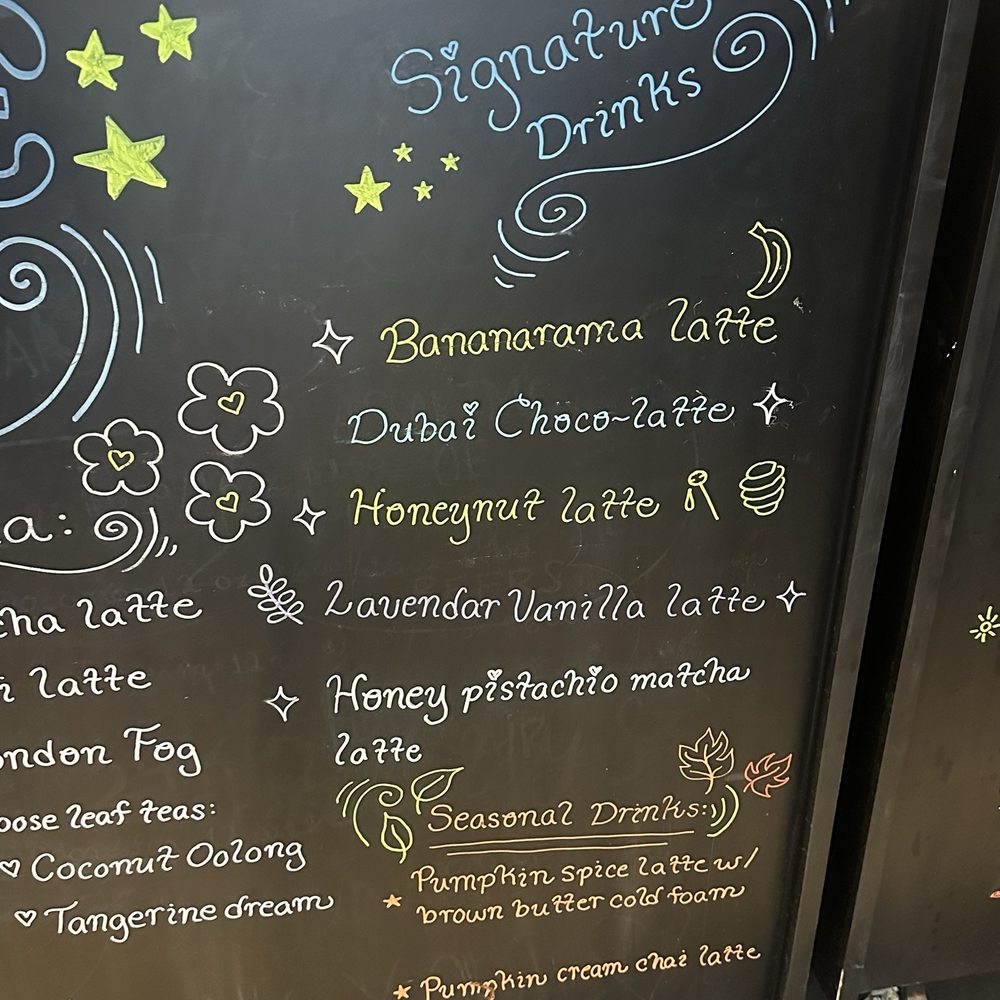 Signature
Drinks
Bananarama latte
Dubai Choco-latte
Honeynut latte
Lavendar Vanilla latte
Honey pistachio matcha
latte
Seasonal Drinks:
Pumpkin spice latte w/
brown butter cold foam
Pumpkin cream chai latte
latte
latte
Fog
leaf teas:
Coconut Oolong
Tangerine dream